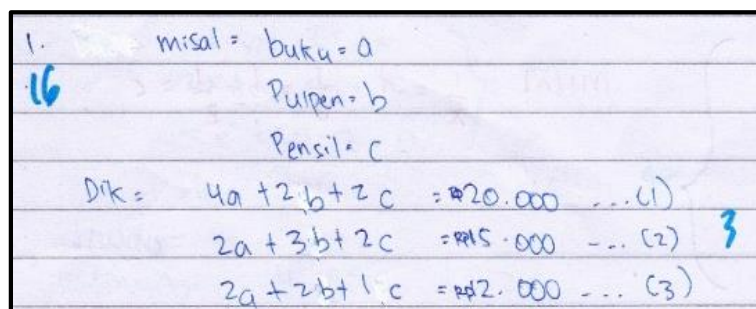 1. misal = buku = a
16 Pulpen = b
Pensil = c
Dik = 4a + 2b + 2c = 20.000 ... (1)
2a + 3b + 2c = Rp15.000 ... (2) 3
2a + 2b + 1c = Rp12.000 ... (3)